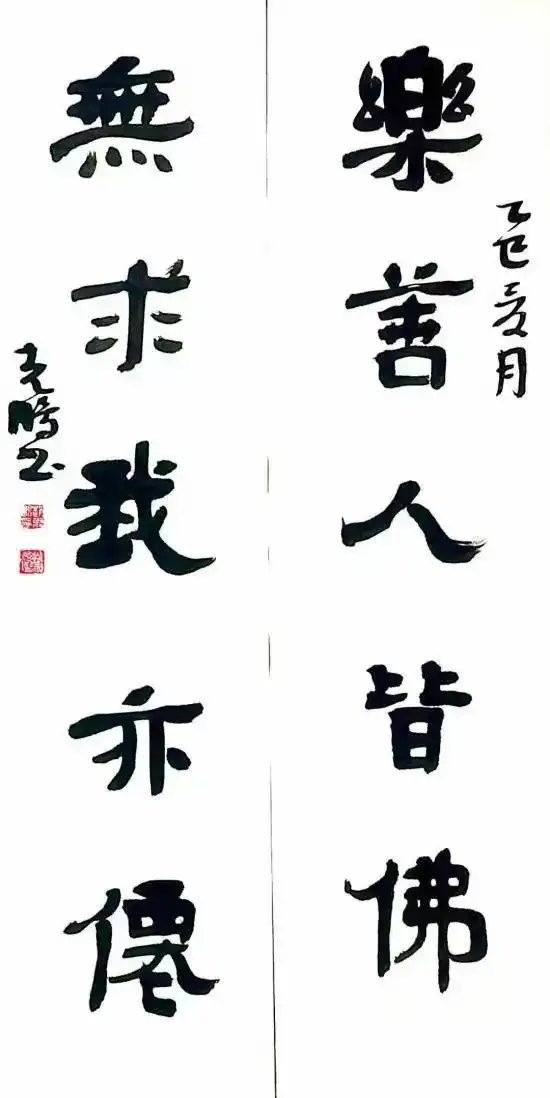 乙巳夏月
樂善人皆佛
無求我亦僊
克鵬书